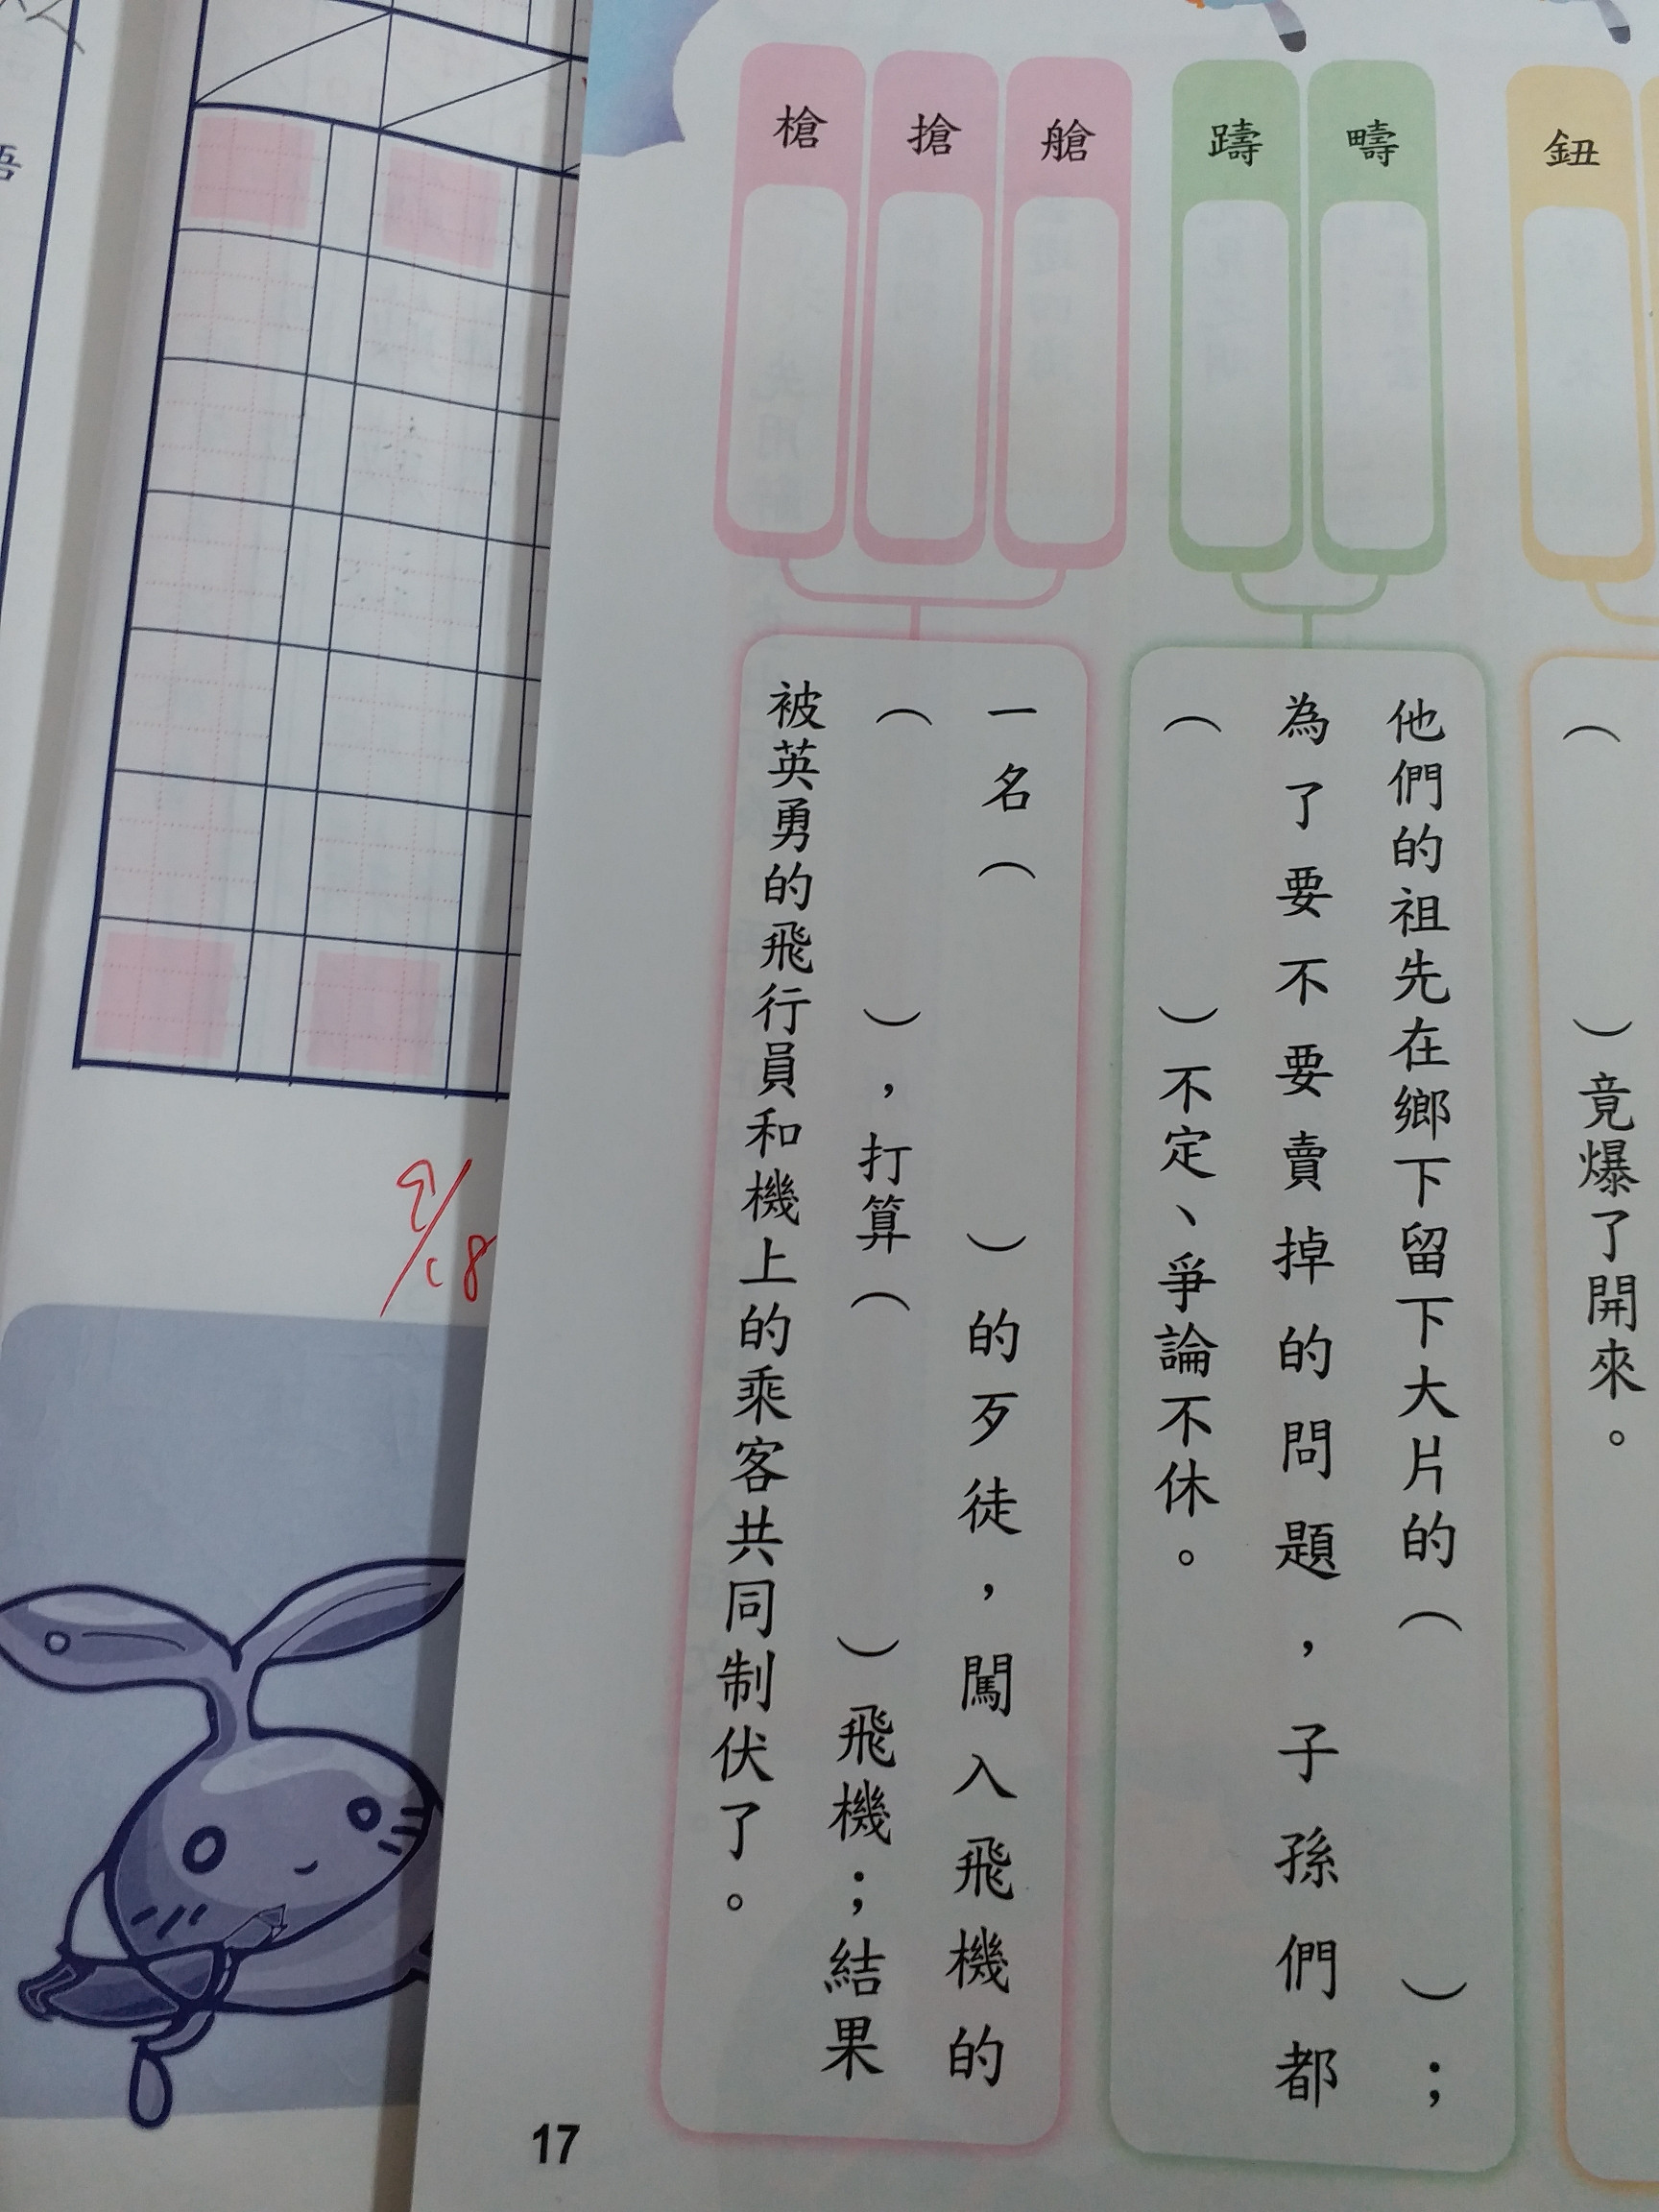 鈕
）竟爆了開來。
（
疇
躊
他們的祖先在鄉下留下大片的（　　　）；
為了要不要賣掉的問題，子孫們都
（　　　）不定、爭論不休。
艙
搶
槍
一名（　　　）的歹徒，闖入飛機的
（　　　），打算（　　　）飛機；結果
被英勇的飛行員和機上的乘客共同制伏了。
17
語